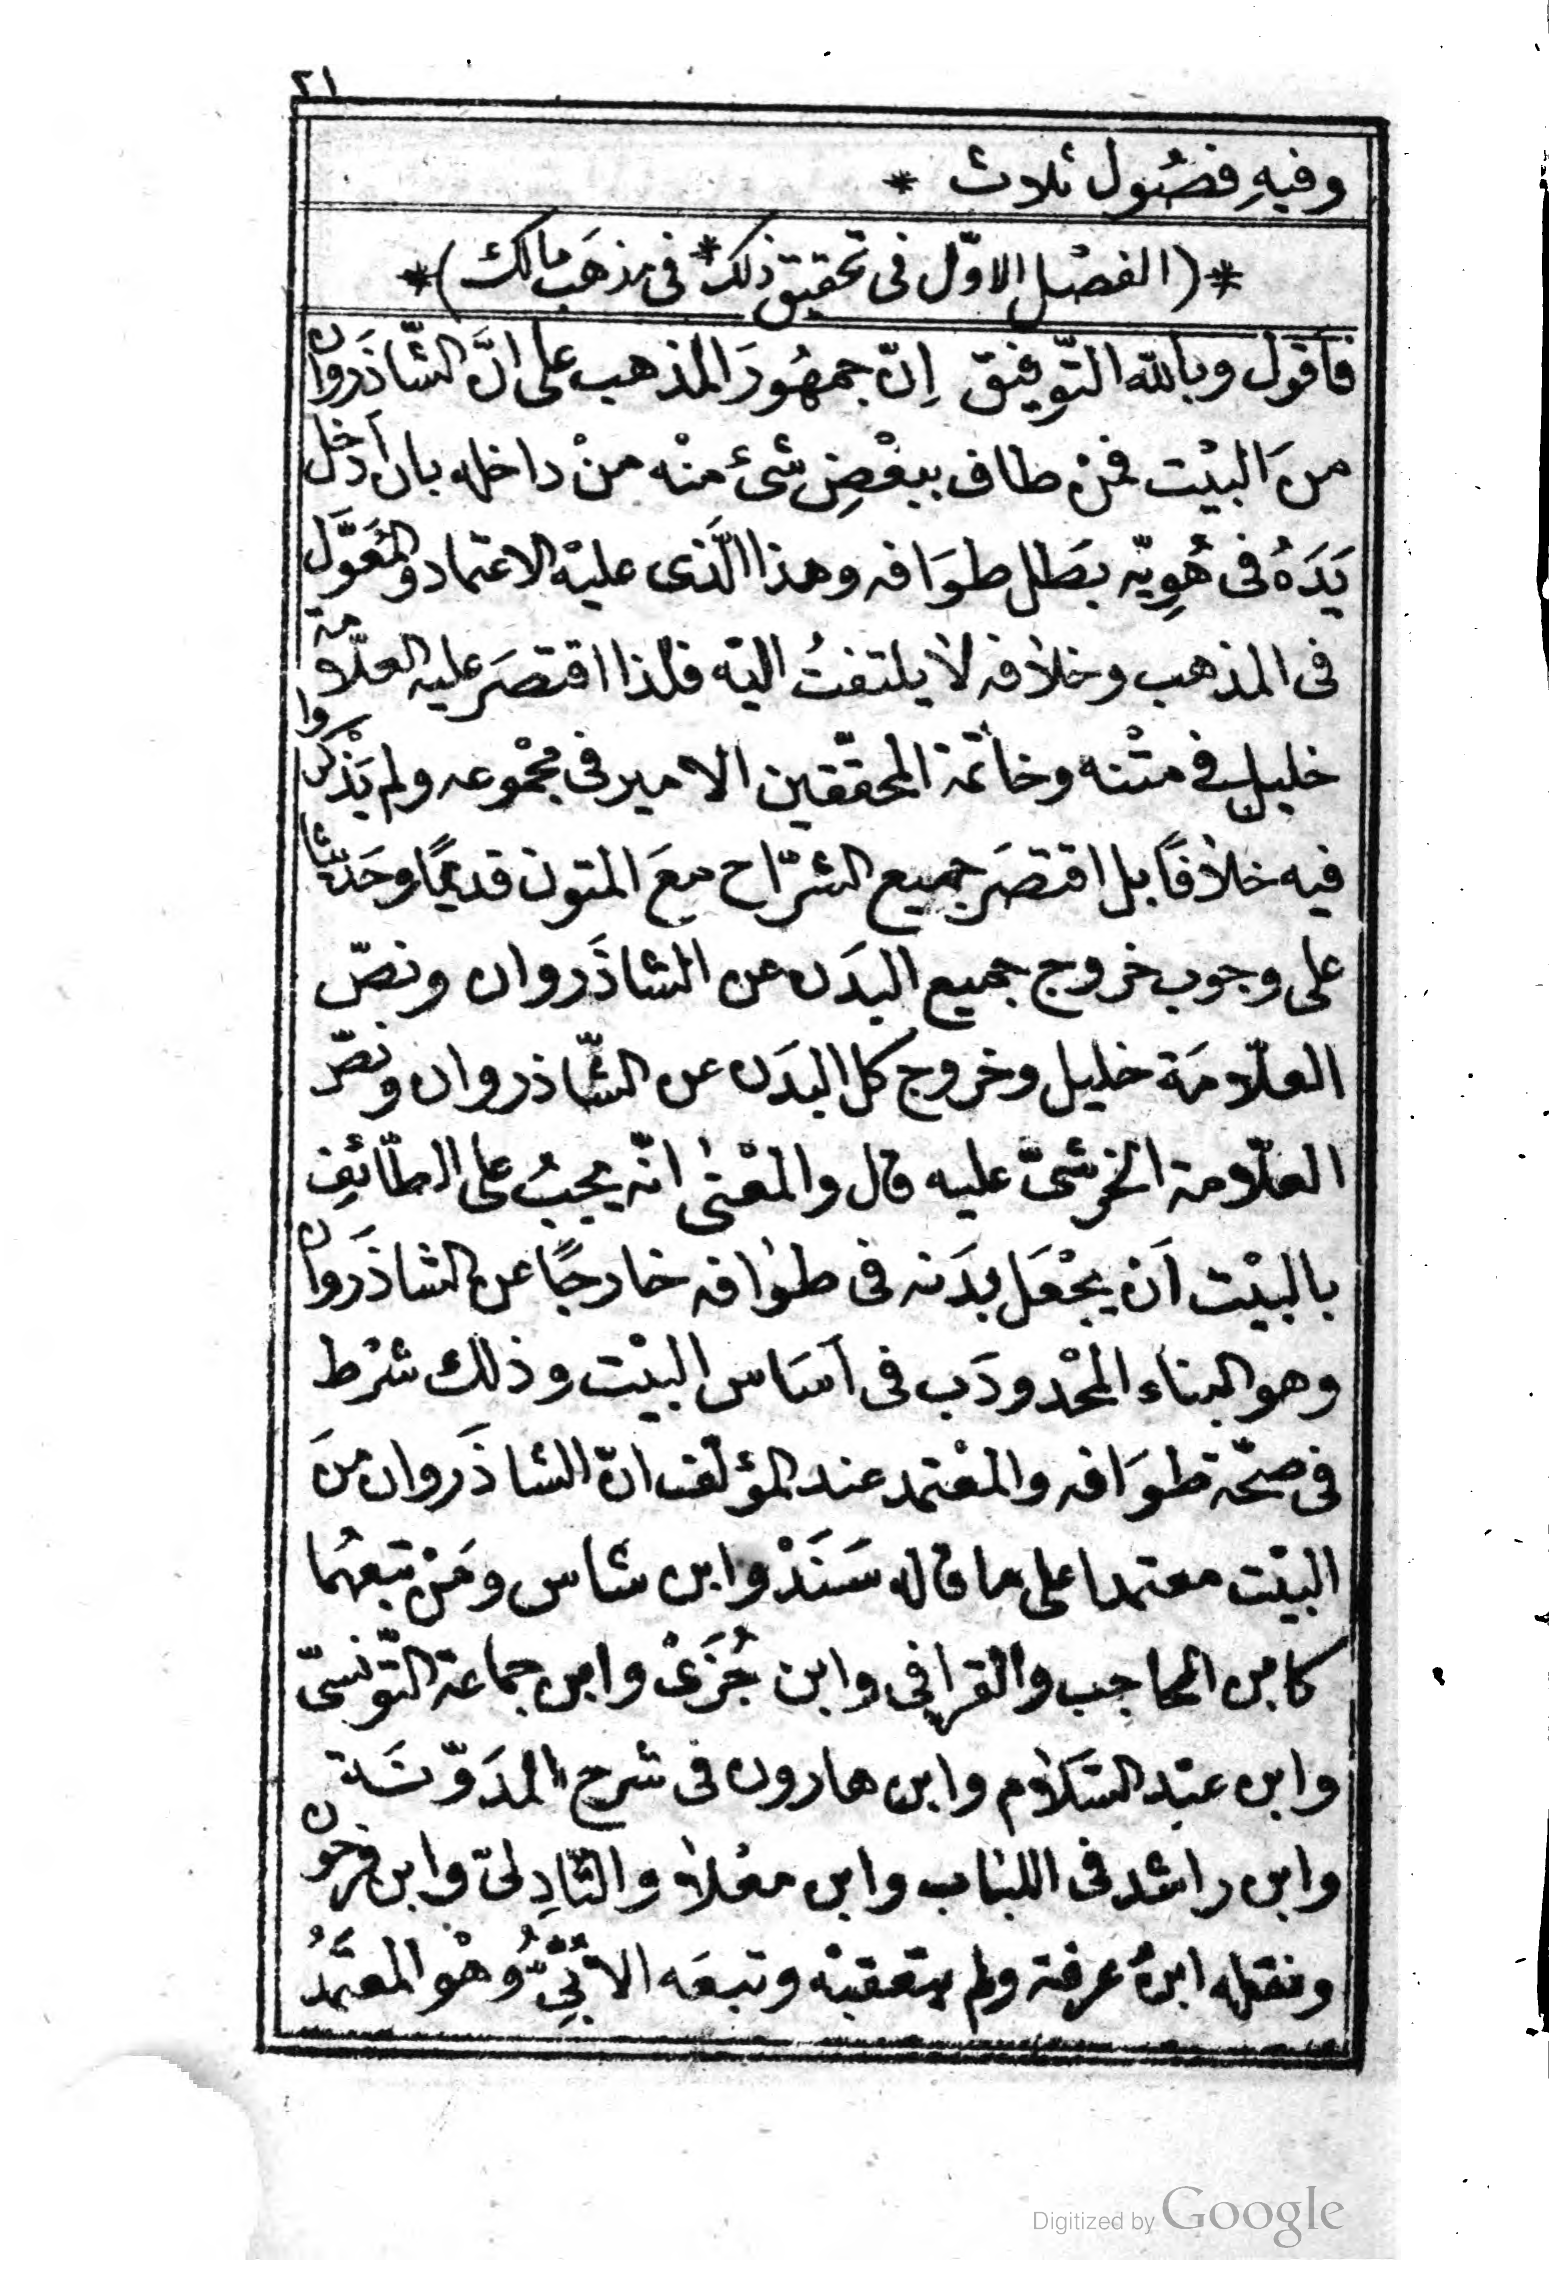 ٢١
وفيهِ فصُول ثلاث *
*(الفصْل الاوّل فى تحقيق ذلك * فى مذهَب مالك)*
فأقول وبالله التّوفيق إنّ جمهُورَ المذهب على انَّ الشّاذَروان
منَ البيْت فمنْ طاف ببعْضِ شئ منْه منْ داخله بان اَدخل
يَدَهُ فى هُوِيّه بَطَل طوَافه وهذا الَّذى عليْه الاعتماد والمُعَوَّل
فى المذهب وخلافه لا يلتفتُ اليْه فلذا اقتصَرَ عليه العلّامة
خليل في متْنه وخاتمة المحقّقين الامير فى مجْموعه ولم يَذْكروا
فيه خلافًا بل اقتصَر جميع الشرّاح معَ المتون قديمًا وحَديثا
على وجوب خروج جميع البدَن عن الشاذَروان ونصّ
العلّامَة خليل وخروج كل البدَن عن الشّاذروان ونصّ
العلّامة الخرشىّ عليه قال والمعْنى انّه يجبُ على الطّائفِ
بالبيْت اَن يجْعَل بدَنه فى طوافه خارجًا عن الشاذَروان
وهو البناء المحْدودَب فى اَسَاس البيْت وذلك شرْط
فى صحّة طوَافه والمعْتمد عند المؤلّف انّ الشاذَروان منَ
البيْت معتمدا على ما قاله سَنَدْ وابن شاس ومَنْ تبعهُما
كابن الحاجب والقرافى وابن جُزَىْ وابن جماعة التّونسىّ
وابن عبْد السَّلام وابن هارون فى شرح المدَوّنَة
وابن راشد فى اللباب وابن معْلا والتّادِلىّ وابن فرحون
ونقله ابنُ عرفة ولم يتعقبْه وتبعَه الاُبّىُّ وهْو المعتَمدُ
Digitized by Google